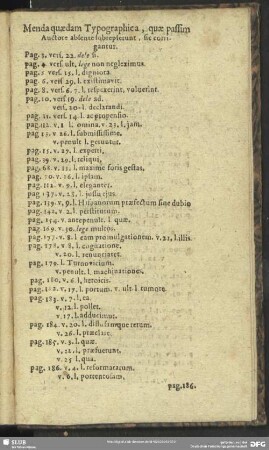 Menda quædam Typographica, quæ passim
Auctore absente subrepserunt, sic corri-
gantur.
Pag. 3. vers. 22. dele si.
Pag. 4. vers. ult. lege non negleximus.
Pag. 5. vers. 15. l. digniora.
Pag. 6. vers 29. l. existimavit.
Pag. 8. vers. 6. 7. l. respexerint, voluerint.
Pag. 10. vers 19. dele ad.
vers. 20. l. declarandi.
Pag. 11. vers. 14. l. acptopensio.
Pag. 12. v. 1 l. omnia. v. 23. l. jam.
Pag 15. v. 26. l. submississime.
v. penult l. getuatur.
pag. 15. v. 29. l. experti,
pag. 29. v. 29. l. reliqui,
pag. 68. v. 11. l. maxime foris gestas,
pag. 70. v. 26. l. ipsam.
pag. 112. v. 9. l. eleganter.
pag 137. v. 23. l. jussu ejus.
pag. 139. v. 9. l. Hispanorum præfectum sine dubio
pag. 142. v. 2. l. perstiterunt.
pag. 154. v. antepenult. l. quæ.
pag. 169. v. 30. lege multos.
pag. 177. v. 8. l. eam promulgationem. v. 21, l. illis.
pag. 178 v. 8. l. cognatione,
v. 20. l. renunciaret.
pag. 179. l. Turnovicium.
v. penult. l. machinationes.
pag. 180. v. 6. l. heroicis.
pag. 182. v. 17. l. portum. v. ult l. tumore.
pag. 183. v. 7. l. ea.
v. 12. l. pollet.
v. 17. l. adducimur.
pag. 184. v. 20. l. diffusamque rerum.
v. 26. l. præclare.
pag. 185. v. 3. l. quæ.
v. 21. l. præfuerunt.
v. 25 l. qua.
pag. 186. v. 4. l. reformatarum.
v. 6. l. portentosam.
pag. 186.